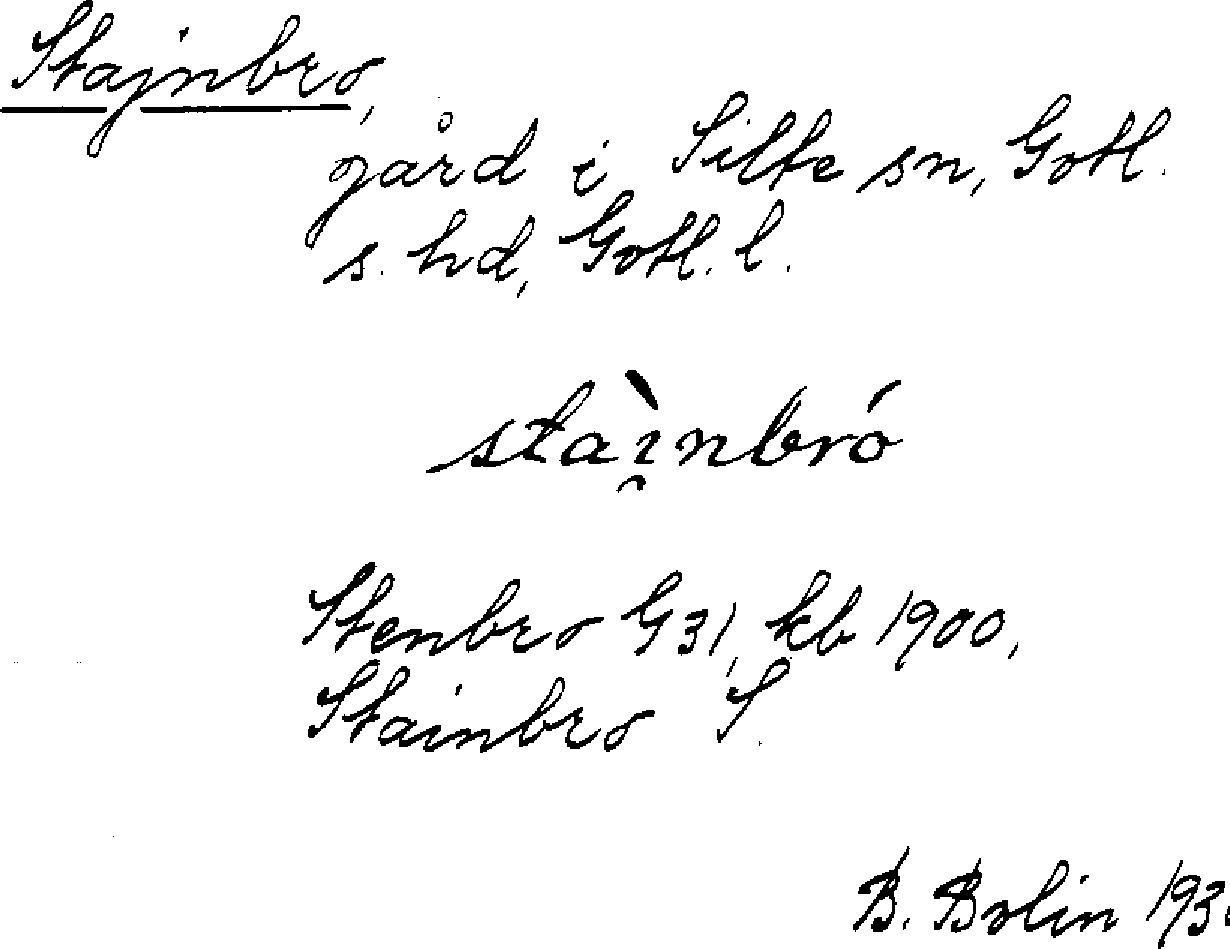 Stajnbro,
gård i Silte sn, Gotl.
s. hd, Gotl. l.
staì̯nbró
Stenbro G 31, kb 1900,
Stainbro S.
B. Bolin 193